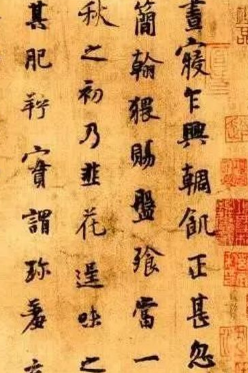 晝寢乍興輖飢正甚忽
簡翰猥賜盤飧當一
秋之初乃韭花逞味之
其肥羜實謂珍羞